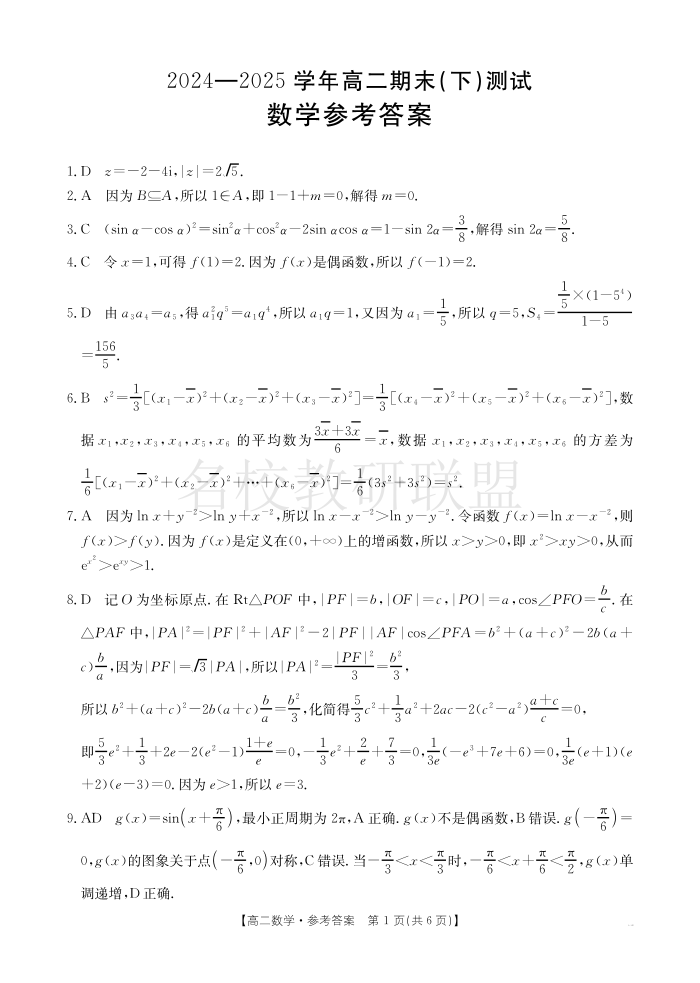 2024—2025 学年高二期末(下)测试
数学参考答案
1. D z=-2-4i,|z|=2√5.
2. A 因为 B⊆A,所以 1∈A,即 1-1+m=0,解得 m=0.
3. C (sin α-cos α)²=sin²α+cos²α-2sin αcos α=1-sin 2α=3/8,解得 sin 2α=5/8.
4. C 令 x=1,可得 f(1)=2. 因为 f(x)是偶函数,所以 f(-1)=2.
5. D 由 a₃a₄=a₅,得 a₁²q⁵=a₁q⁴,所以 a₁q=1,又因为 a₁=1/5,所以 q=5,S₄=(1/5×(1-5⁴))/(1-5)
=156/5.
6. B s²=1/3[(x₁-x̅)²+(x₂-x̅)²+(x₃-x̅)²]=1/3[(x₄-x̅)²+(x₅-x̅)²+(x₆-x̅)²],数
据 x₁,x₂,x₃,x₄,x₅,x₆ 的平均数为(3x̅+3x̅)/6=x̅,数据 x₁,x₂,x₃,x₄,x₅,x₆ 的方差为
1/6[(x₁-x̅)²+(x₂-x̅)²+…+(x₆-x̅)²]=1/6(3s²+3s²)=s².
名校教研联盟
7. A 因为 ln x+y⁻²>ln y+x⁻²,所以 ln x-x⁻²>ln y-y⁻². 令函数 f(x)=ln x-x⁻²,则
f(x)>f(y). 因为 f(x)是定义在(0,+∞)上的增函数,所以 x>y>0,即 x²>xy>0,从而
e^(x²)>e^(xy)>1.
8. D 记 O 为坐标原点. 在 Rt△POF 中,|PF|=b,|OF|=c,|PO|=a,cos∠PFO=b/c. 在
△PAF 中,|PA|²=|PF|²+|AF|²-2|PF||AF|cos∠PFA=b²+(a+c)²-2b(a+
c)b/a,因为|PF|=√3|PA|,所以|PA|²=|PF|²/3=b²/3,
所以 b²+(a+c)²-2b(a+c)b/a=b²/3,化简得5/3c²+1/3a²+2ac-2(c²-a²)(a+c)/c=0,
即5/3e²+1/3+2e-2(e²-1)(1+e)/e=0,-1/3e²+2/e+7/3=0,1/3e(-e³+7e+6)=0,1/3e(e+1)(e
+2)(e-3)=0. 因为 e>1,所以 e=3.
9. AD g(x)=sin(x+π/6),最小正周期为 2π,A 正确. g(x)不是偶函数,B 错误. g(-π/6)=
0,g(x)的图象关于点(-π/6,0)对称,C 错误. 当-π/3<x<π/3时,-π/6<x+π/6<π/2,g(x)单
调递增,D 正确.
【高二数学·参考答案 第 1 页(共 6 页)】